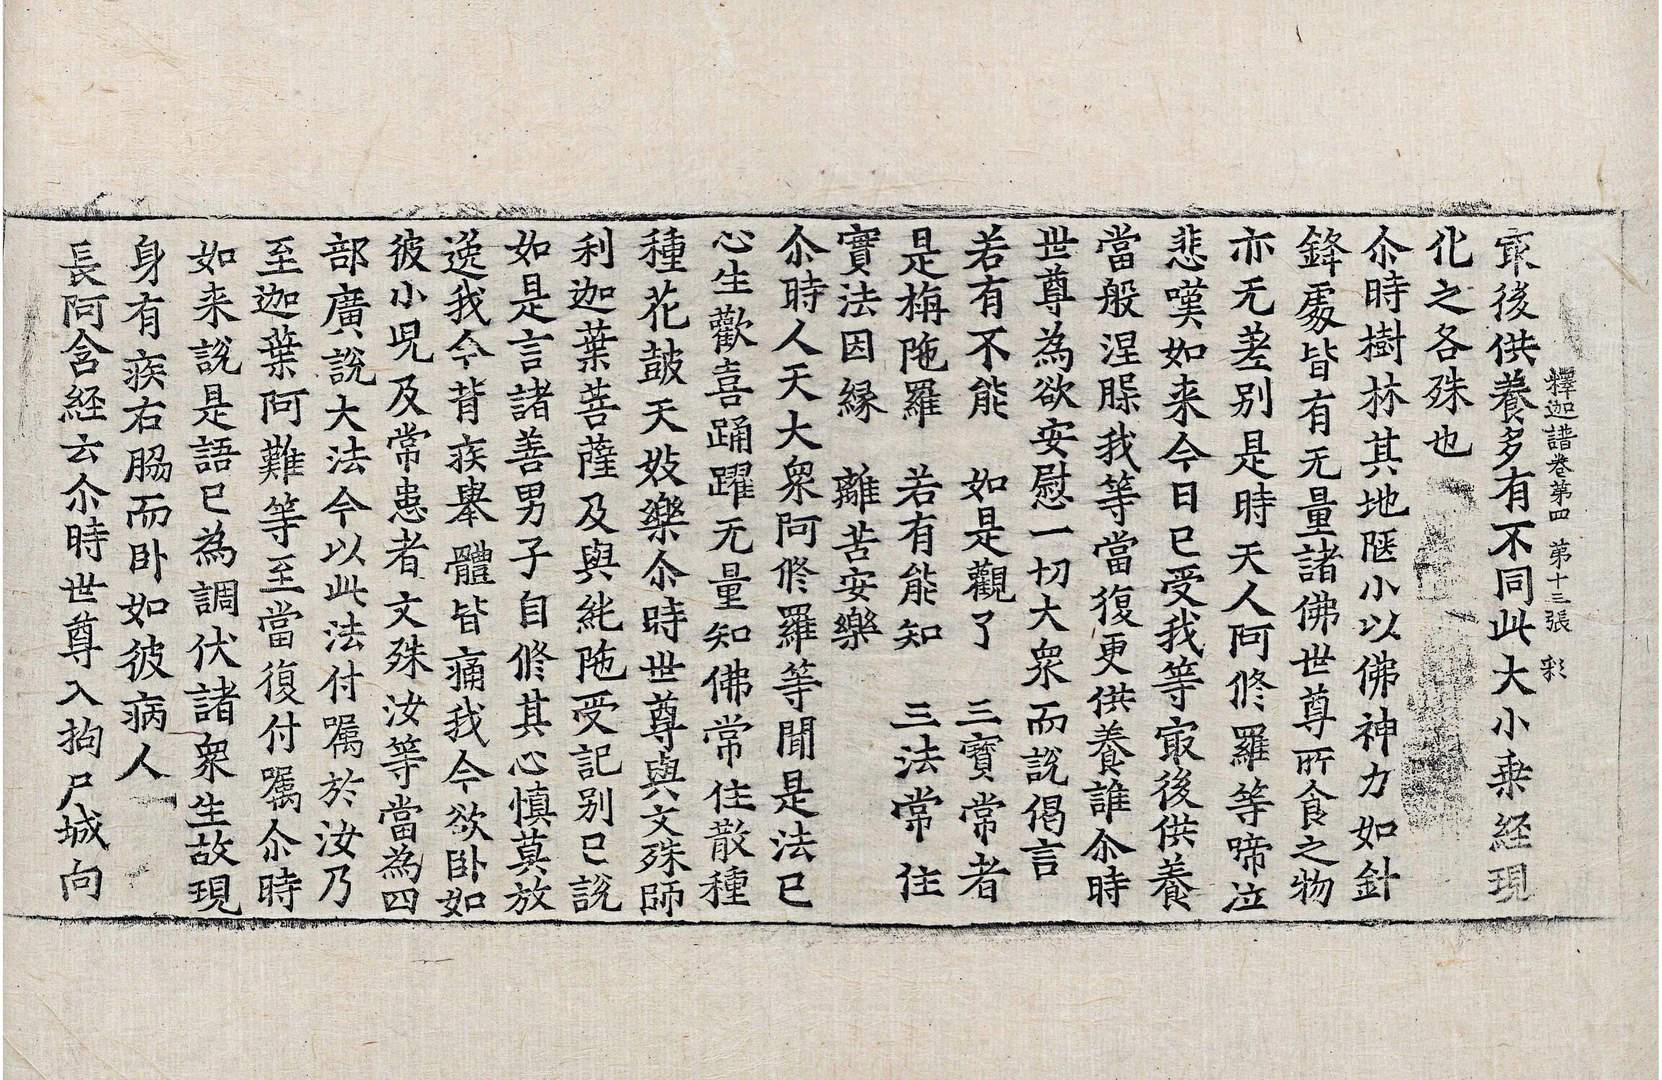 釋迦譜卷第四 第十三張 彩
㝡後供養多有不同此大小乗経現
化之各殊也
尒時樹林其地陿小以佛神力如針
鋒處皆有无量諸佛世尊所食之物
亦无差别是時天人阿修羅等啼泣
悲嘆如来今日已受我等㝡後供養
當般涅槃我等當復更供養誰尒時
世尊為欲安慰一切大衆而說偈言
若有不能 如是觀了 三寶常者
是栴陁羅 若有能知 三法常住
實法因縁 離苦安樂
尒時人天大衆阿修羅等聞是法已
心生歡喜踊躍无量知佛常住散種
種花鼓天妓樂尒時世尊與文殊師
利迦葉菩薩及與純陁受記别已說
如是言諸善男子自修其心慎莫放
逸我今背疾舉體皆痛我今欲卧如
彼小児及常患者文殊汝等當為四
部廣說大法今以此法付嘱於汝乃
至迦葉阿難等至當復付嘱尒時
如来說是語已為調伏諸衆生故現
身有疾右脇而卧如彼病人
長阿含経云尒時世尊入拘尸城向